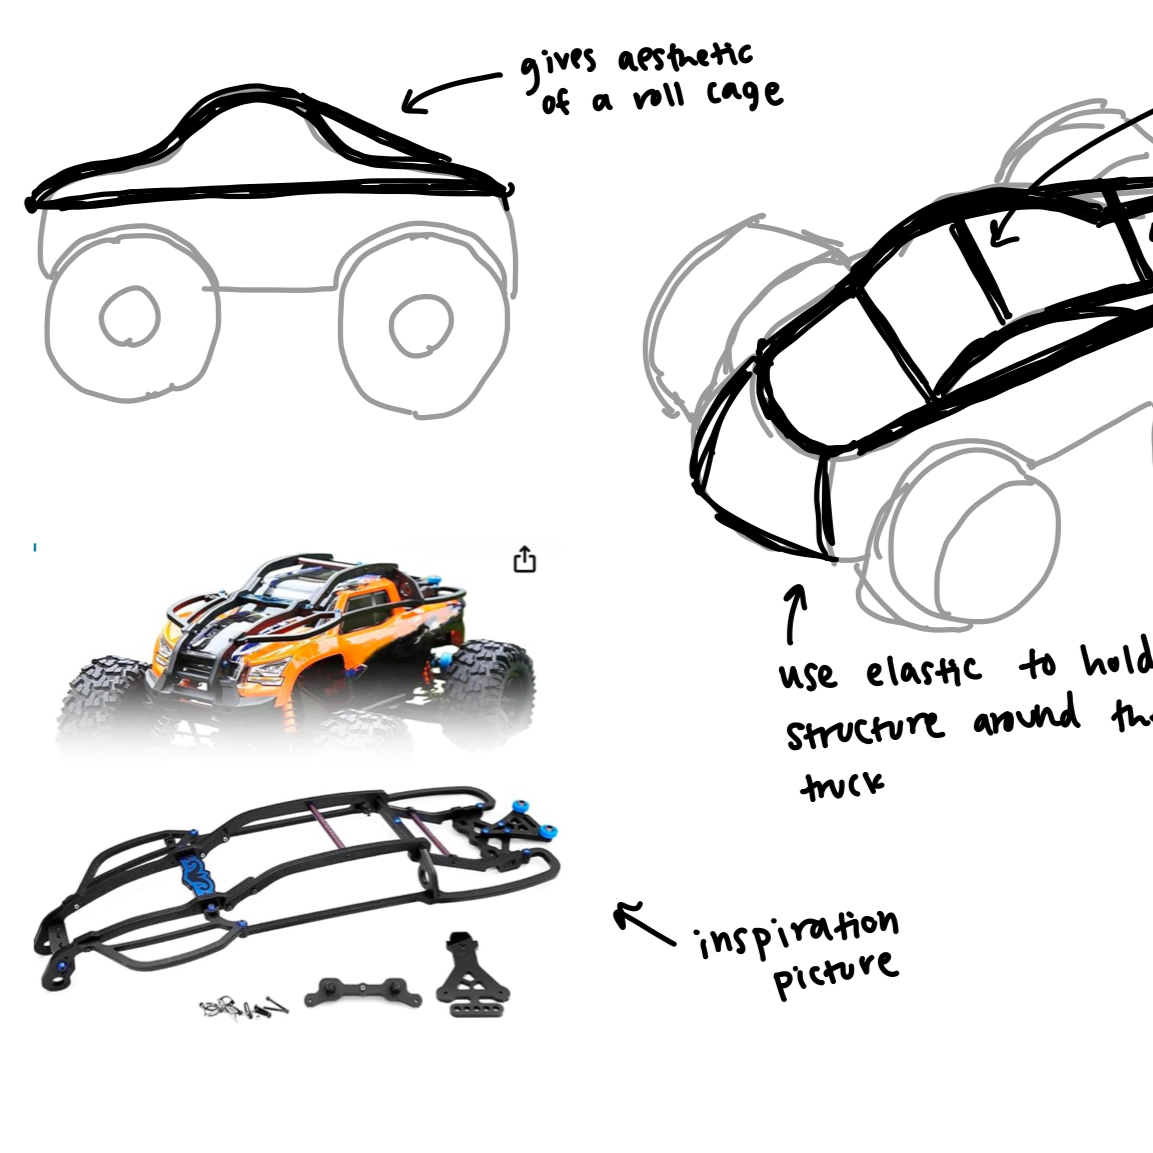 gives aesthetic
of a roll cage
use elastic to hold
structure around
truck
inspiration
picture